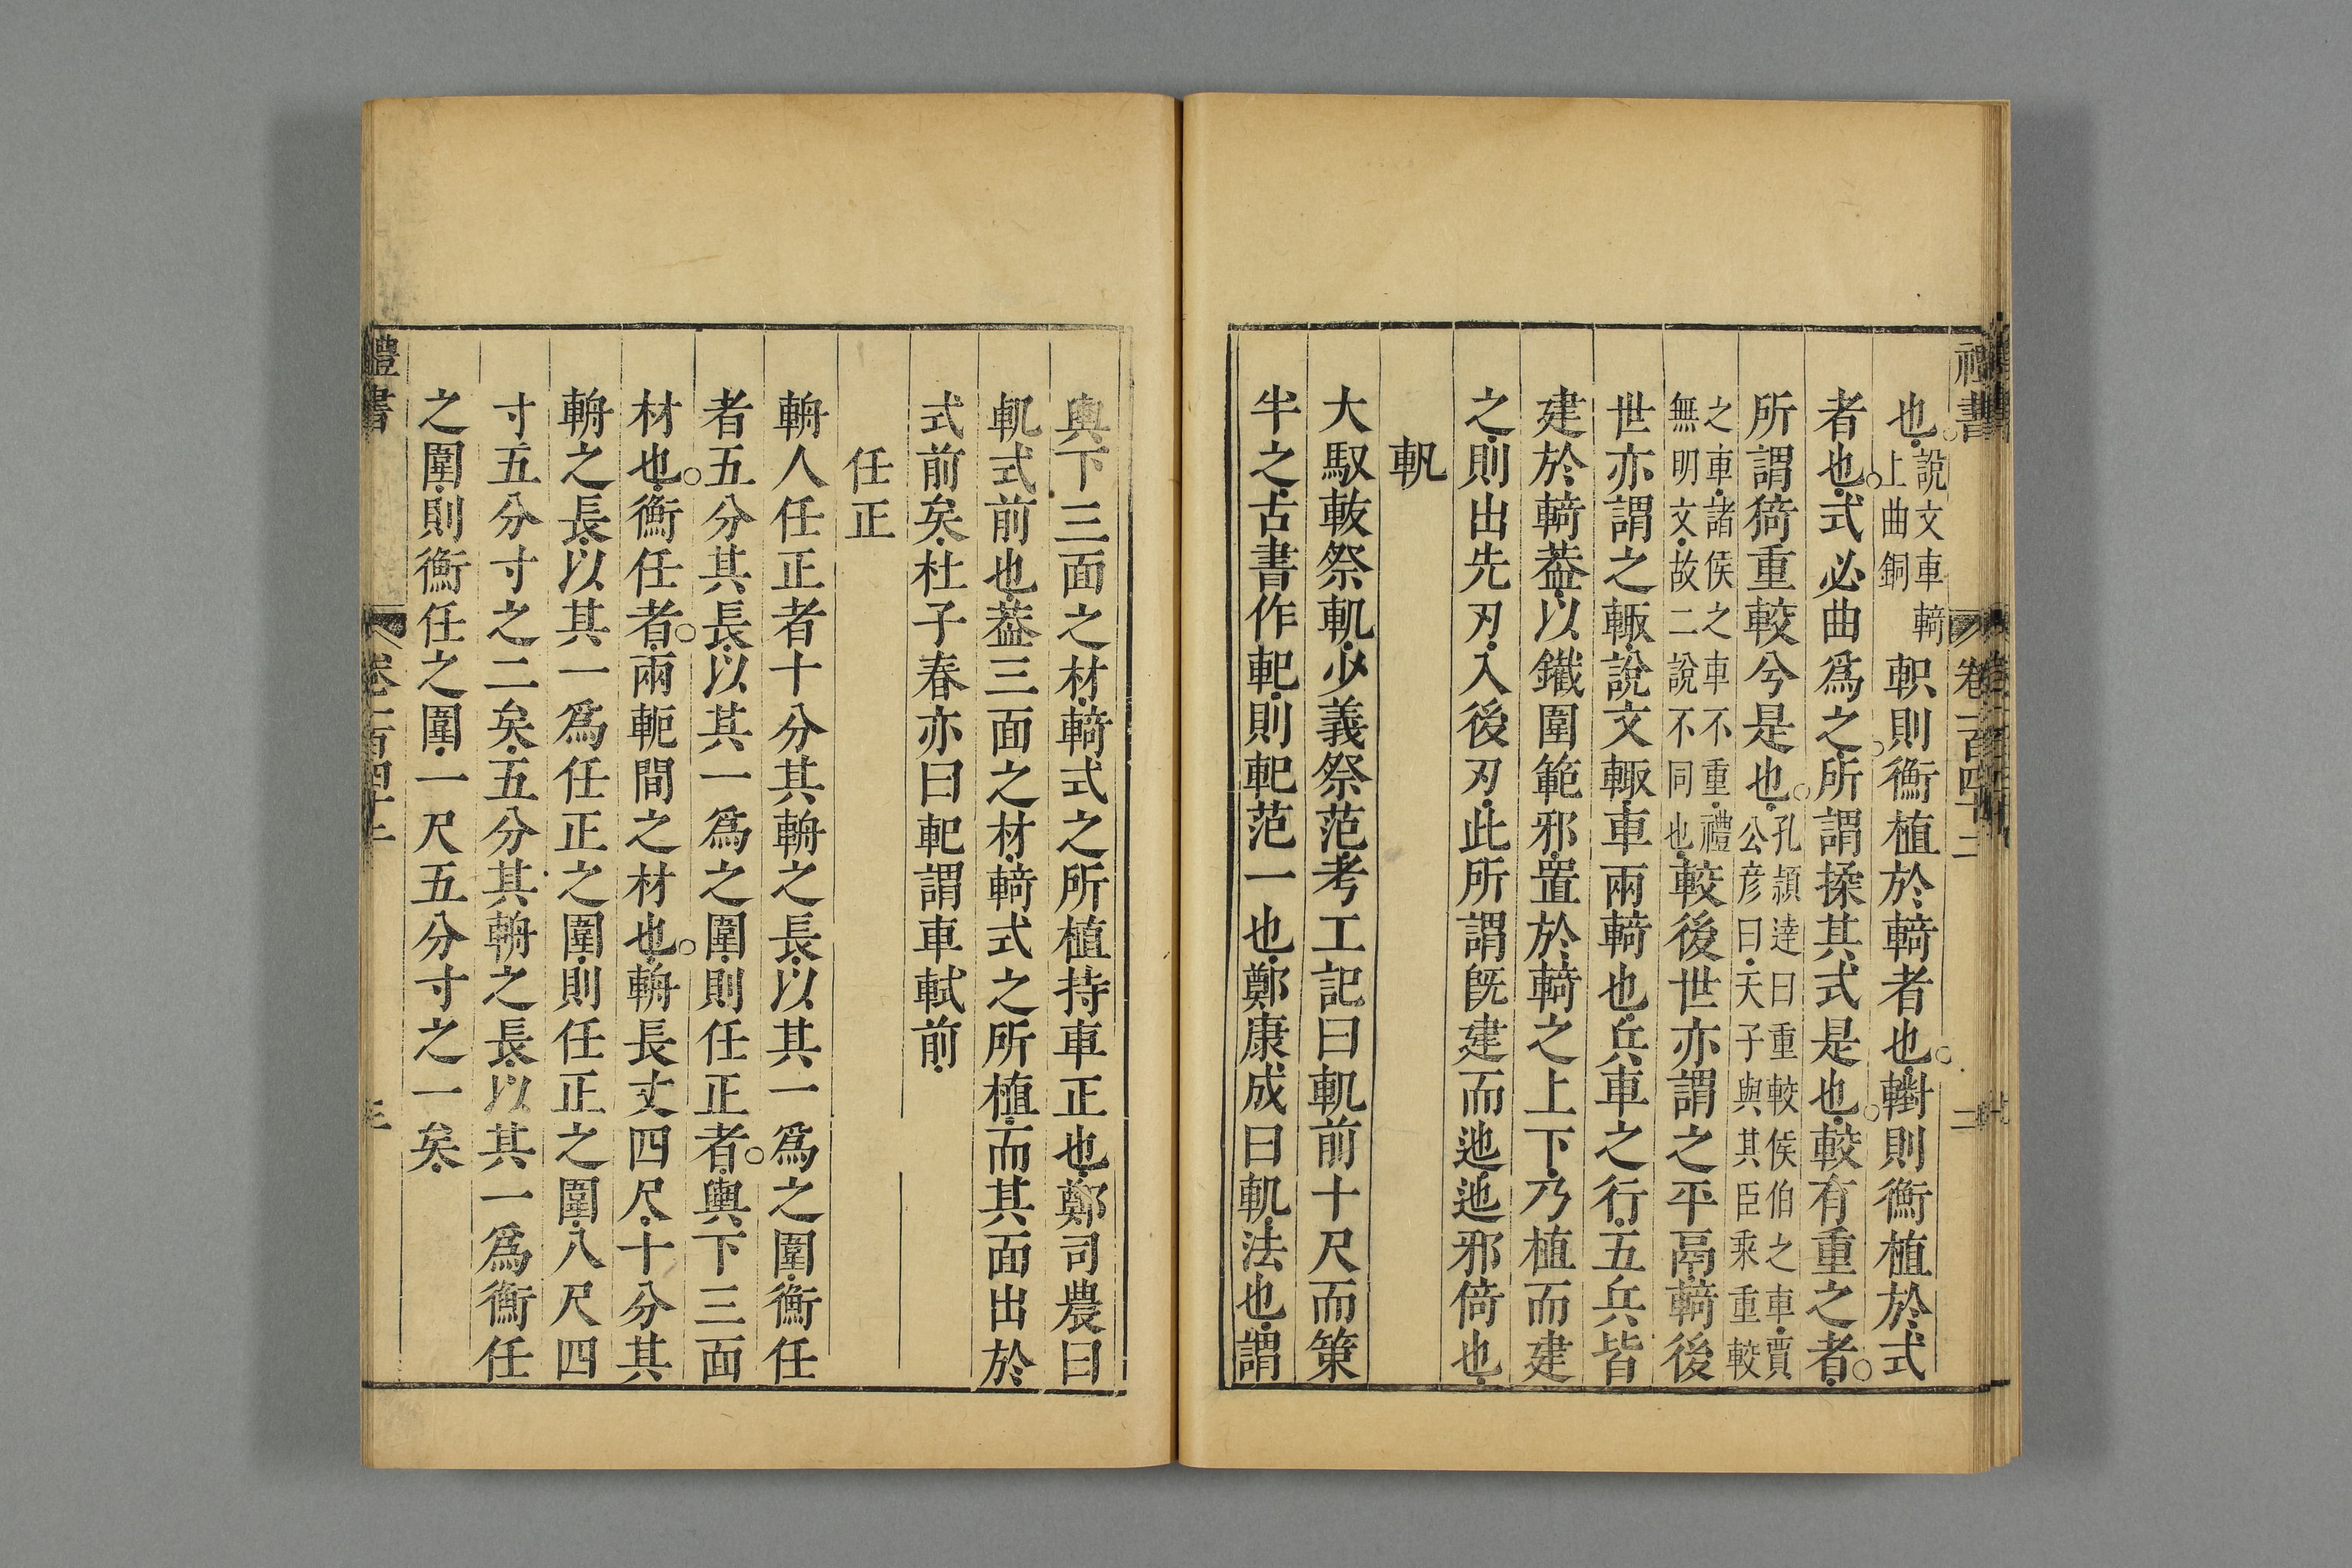 禮書 卷一百四十二 二
也說文車輢上曲銅軹則衡植於輢者也轛則衡植於式
者也式必曲爲之所謂揉其式是也較有重之者
所謂猗重較兮是也孔頴達曰重較侯伯之車賈公彦曰天子與其臣乘重較
之車諸侯之車不重禮無明文故二說不同也較後世亦謂之平鬲輢後
世亦謂之輙說文輙車兩輢也兵車之行五兵皆
建於輢葢以鐵圍範邪置於輢之上下乃植而建
之則出先刃入後刃此所謂旣建而迆迆邪倚也
軓
大馭軷祭軓少義祭范考工記曰軓前十尺而策
半之古書作軋則軋范一也鄭康成曰軓法也謂
輿下三面之材輢式之所植持車正也鄭司農曰
軓式前也葢三面之材輢式之所植而其面出於
式前矣杜子春亦曰軋謂車軾前
任正
輈人任正者十分其輈之長以其一爲之圍衡任
者五分其長以其一爲之圍則任正者輿下三面
材也衡任者兩軛間之材也輈長丈四尺十分其
輈之長以其一爲任正之圍則任正之圍八尺四
寸五分寸之二矣五分其輈之長以其一爲衡任
之圍則衡任之圍一尺五分寸之一矣
禮書 卷一百四十二